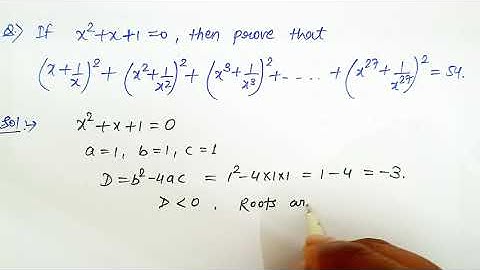 Q:) If x²+x+1=0, then prove that
(x+1/x)² + (x²+1/x²)² + (x³+1/x³)² + ---- + (x²⁷+1/x²⁷)² = 54.
Sol:→ x²+x+1=0
a=1, b=1, c=1
D=b²-4ac = 1²-4×1×1 = 1-4 = -3.
D<0, Roots ar